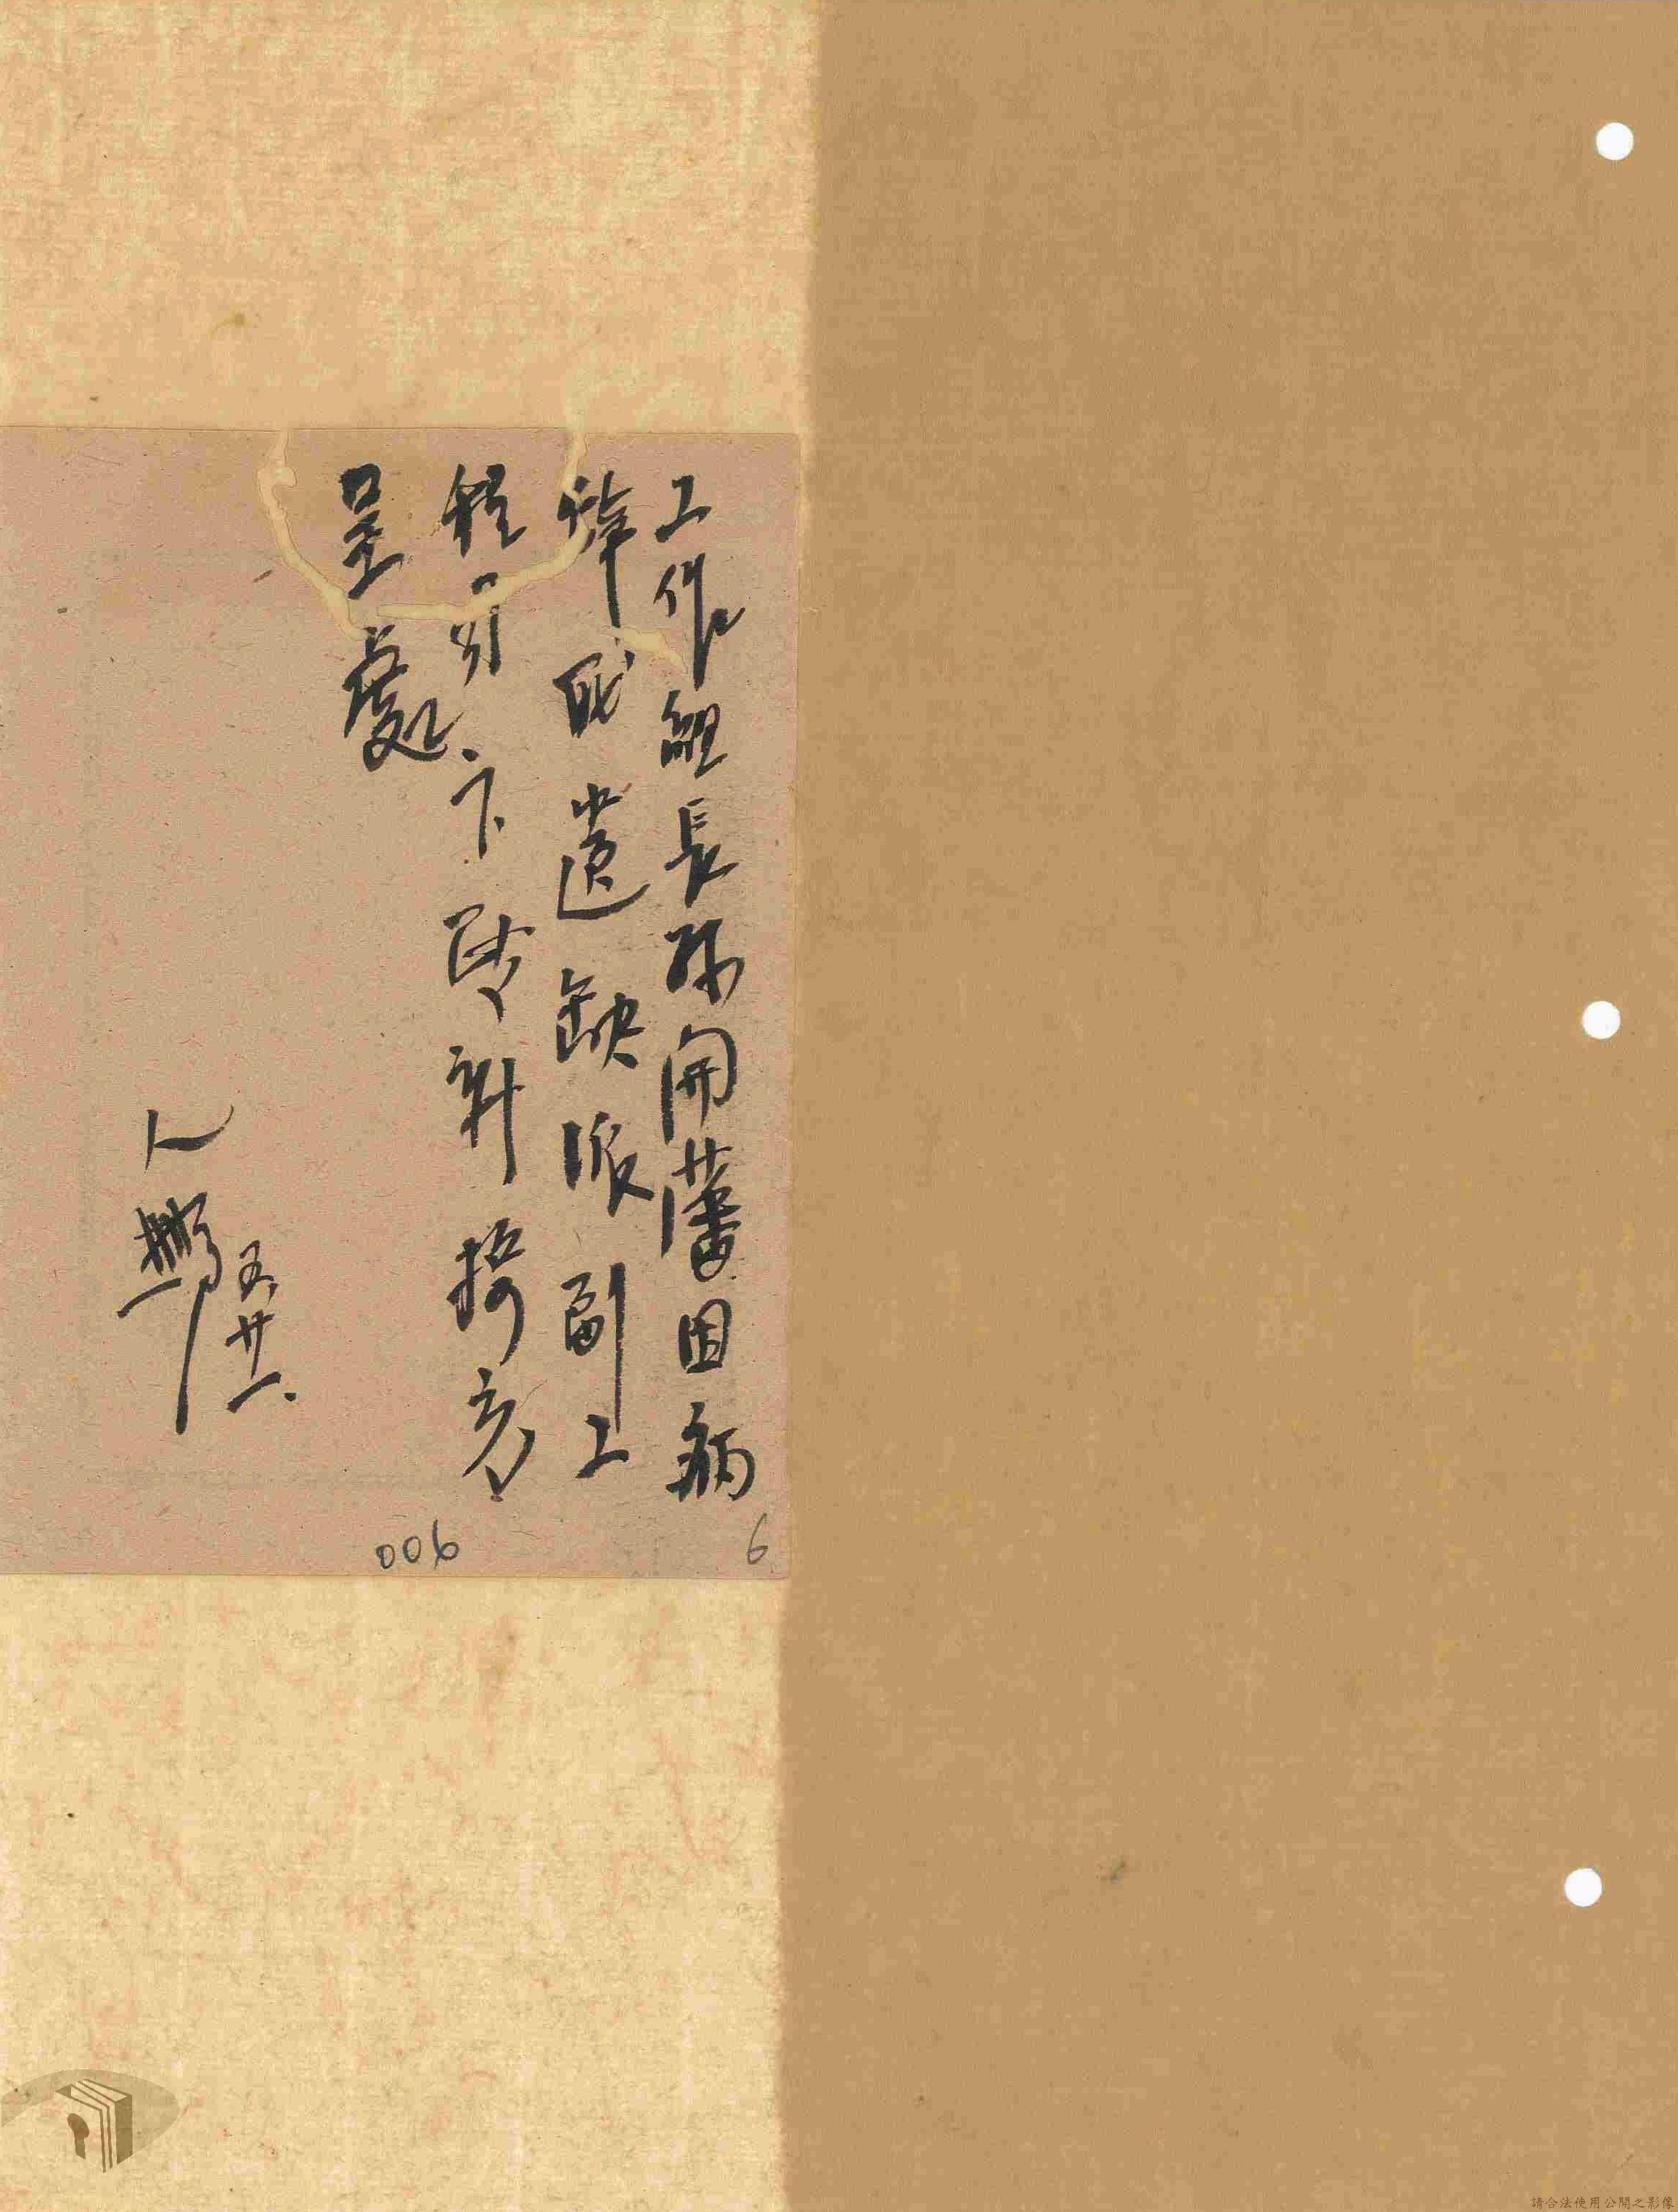 工作組長孫開藩因病
辭職遺缺派副工
程司卞陸升接充
呈處
人 五廿一、
006
6
請合法使用公開之影像